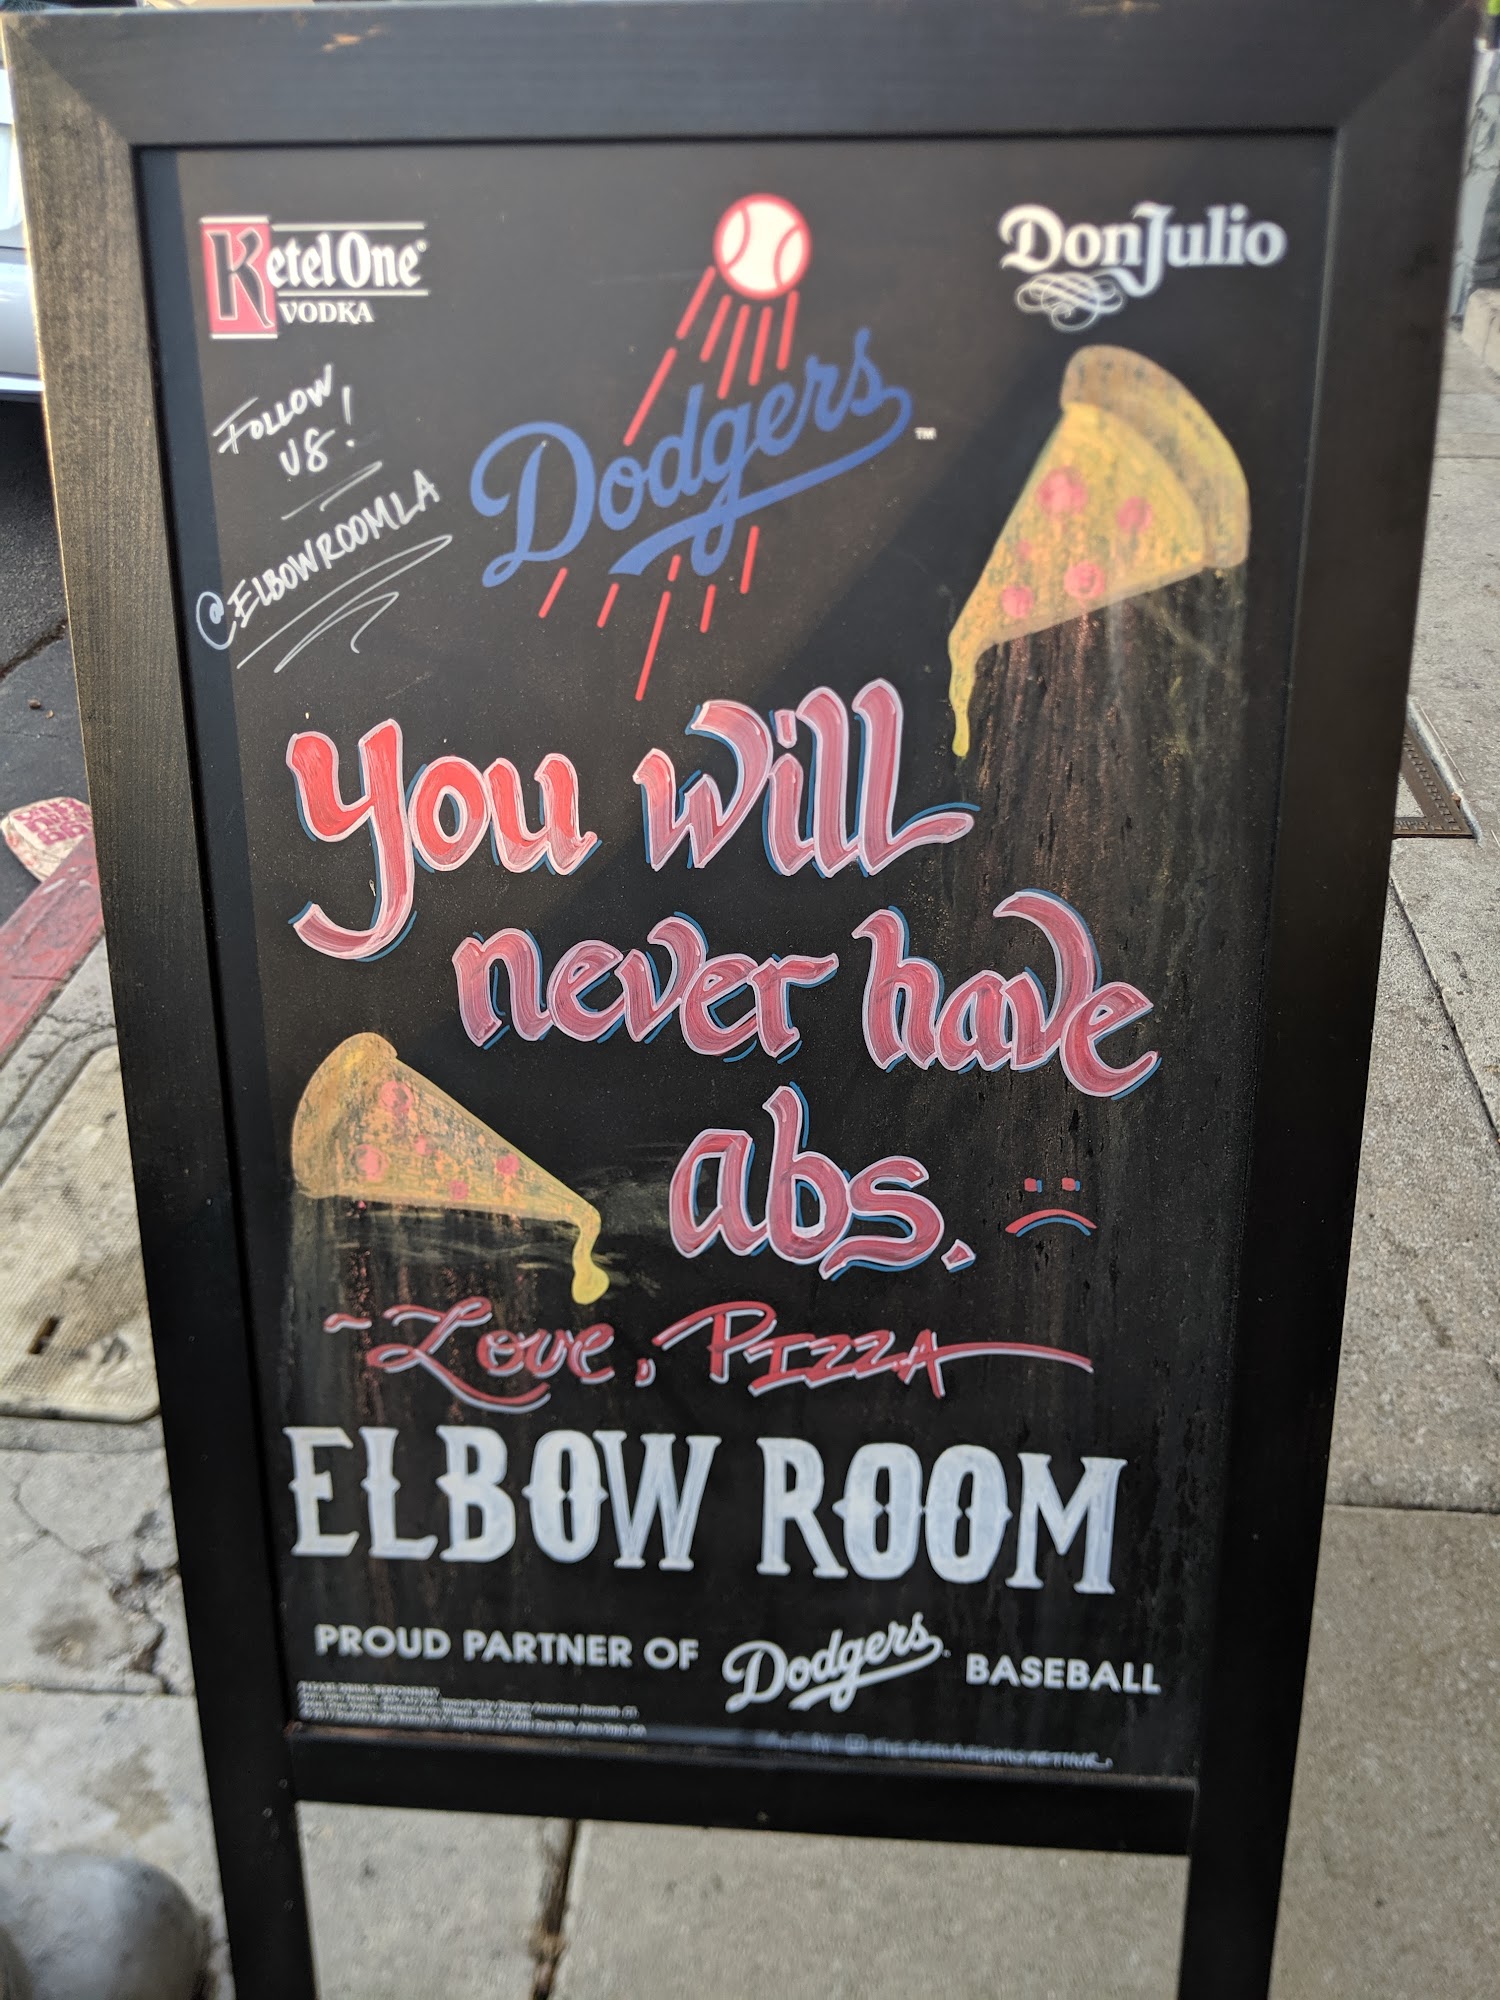 Ketel One®
VODKA
Don Julio
FOLLOW
US!
@ELBOWROOMLA
Dodgers™
you will
never have
abs.
~Love, PIZZA
ELBOW ROOM
PROUD PARTNER OF Dodgers BASEBALL
PLEASE DRINK RESPONSIBLY